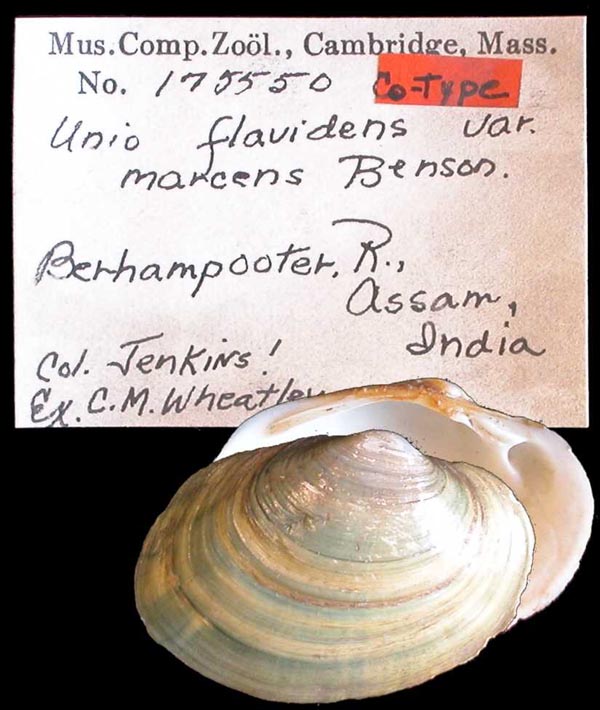 Mus.Comp.Zoöl., Cambridge, Mass.
No. 175550 Co-Type
Unio flavidens var.
marcens Benson.
Berhampooter. R.,
Assam,
India
Col. Jenkins!
Ex. C.M. Wheatley